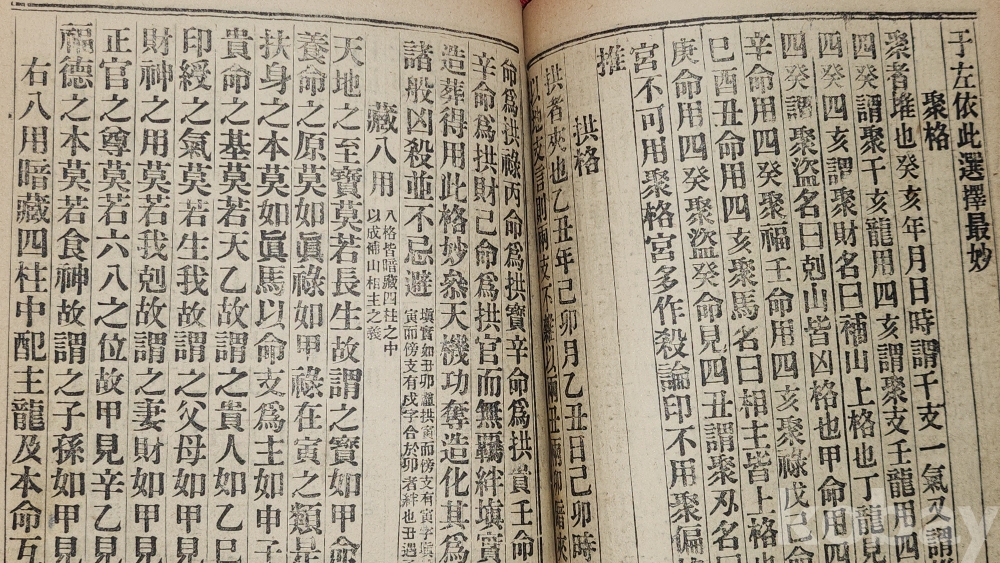 于左依此選擇最妙
聚格
聚者堆也癸亥年月日時謂干支一氣又謂
四癸謂聚干亥龍用四亥謂聚支壬龍用四
四癸四亥謂聚財名曰補山上格也丁龍見
四癸謂聚盜名曰剋山皆凶格也甲命用四
辛命用四癸聚福壬命用四亥聚祿戊己命
己酉丑命用四亥聚馬名曰相主皆上格也
庚命用四癸聚盜癸命見四丑謂聚刃名曰
宮不可用聚格宮多作殺論印不用聚偏
推
拱格
拱者夾也乙丑年己卯月乙丑日己卯時
命爲拱祿丙命爲拱寶辛命爲拱貴壬命
辛命爲拱財己命爲拱官而無羈絆填實
造葬得用此格妙叅天機功奪造化其爲
諸般凶殺並不忌避 填實如丑卯虛拱寅而傍支有寅字填
寅而傍支有戌字合於卯者絆也丑遇
藏八用 八格皆暗藏四柱之中
以成補山相主之義
天地之至寶莫若長生故謂之寶如甲命
養命之原莫如眞祿如甲祿在寅之類是
扶身之本莫如眞馬以命支爲主如申子
貴命之基莫若天乙故謂之貴人如乙巳
印綬之氣莫若生我故謂之父母如甲見
財神之用莫若我剋故謂之妻財如甲見
正官之尊莫若六八之位故甲見辛乙見
福德之本莫若食神故謂之子孫如甲見
右八用暗藏四柱中配主龍及本命互